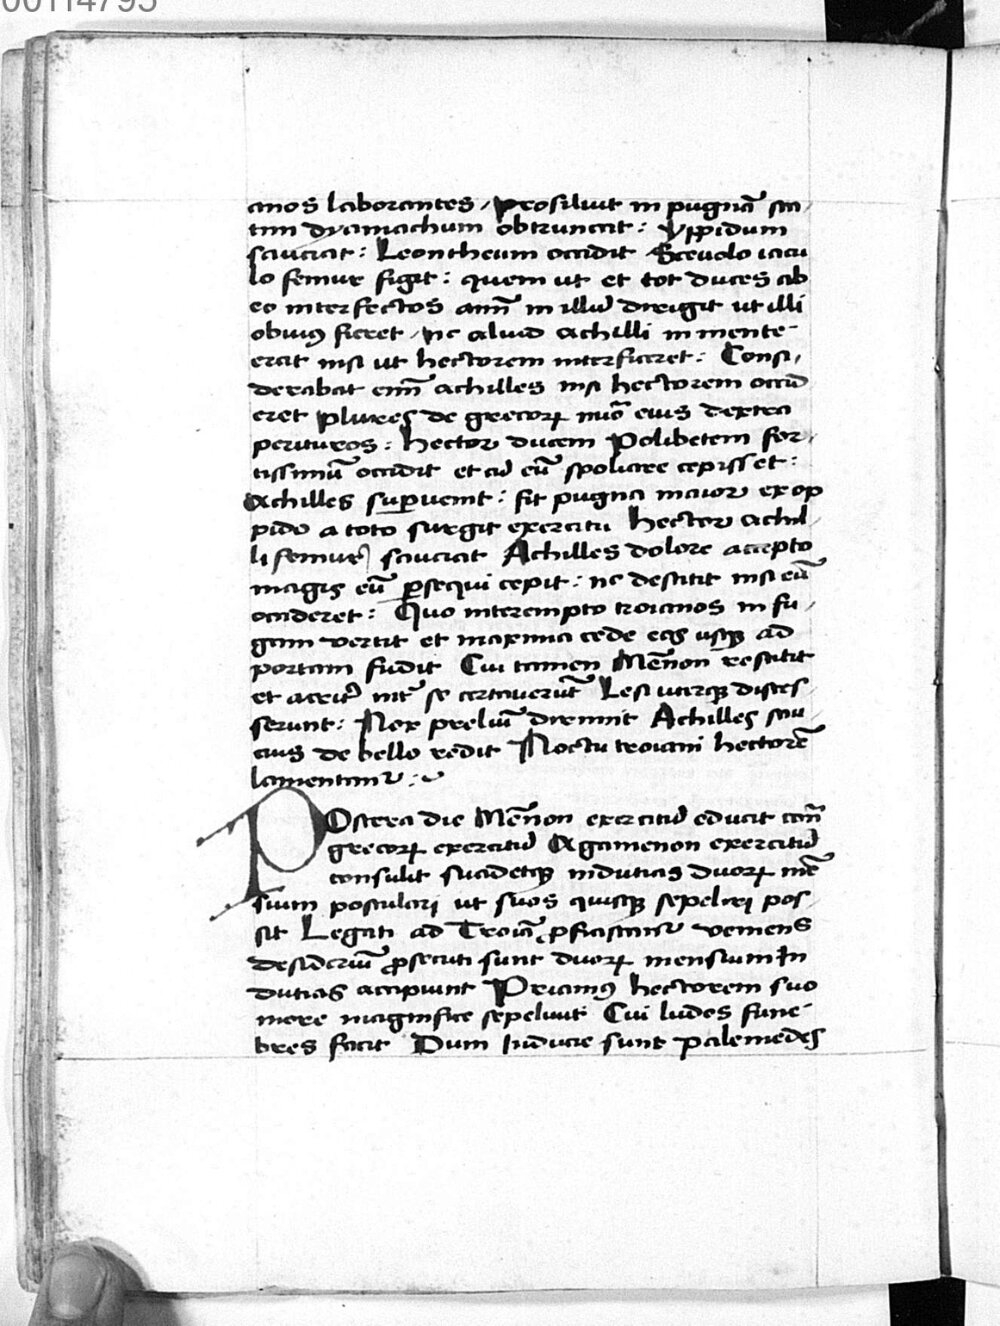 00114795
anos laborantes / prosiliuit in pugnā sta
tim dyamachum obtruncat : yppidum
sauciat : Leontheum occidit Sceuolo iacu
lo femur figit : quem ut et tot duces ab
eo interfectos anm̄ in illud dirigit ut illi
obuius fieret / nc aliud achilli in mente
erat nisi ut hectorem interficeret : Consi,
derabat enim̄ achilles nisi hectorem occid
eret plures de grecoꝝ nūo eius dextra
perituros : hector ducem Polibetem for,
tissimū occidit et cū eū spoliare cepisset :
Achilles suꝑuenit : fit pugna maior ex op
pido a toto surgit exercitu hector achil,
li femur sauciat Achilles dolore accepto
magis eū ꝑsequi cepit : nc destitit nisi eū
occideret : Quo interempto troianos in fu,
gam vertit et maxima cede eos usqꝫ ad
portam fudit Cui tamen Mēnon restitit
et acrit᷒ int᷒ se certauerūt Lesi uterqꝫ disces,
serunt : Nox preliū diremit Achilles sau,
cius de bello redit Noctu troiani hectorē
lamentant᷒ :
POstera die Mēnon exercitū educit contā
grecoꝝ exercitū Agamenon exercitū
consulit suadetqꝫ inducias duoꝝ mē
sium postulari ut suos quisqꝫ sepeliri pos,
sit Legati ad Troiā ꝓficiscunt᷒ veniens
desideriū ꝓsecuti sunt duoꝝ mensium In
ducias accipiunt Priamꝰ hectorem suo
more magnifice sepeliuit Cui ludos fune
bres facit Dum Inducie sunt palemedes